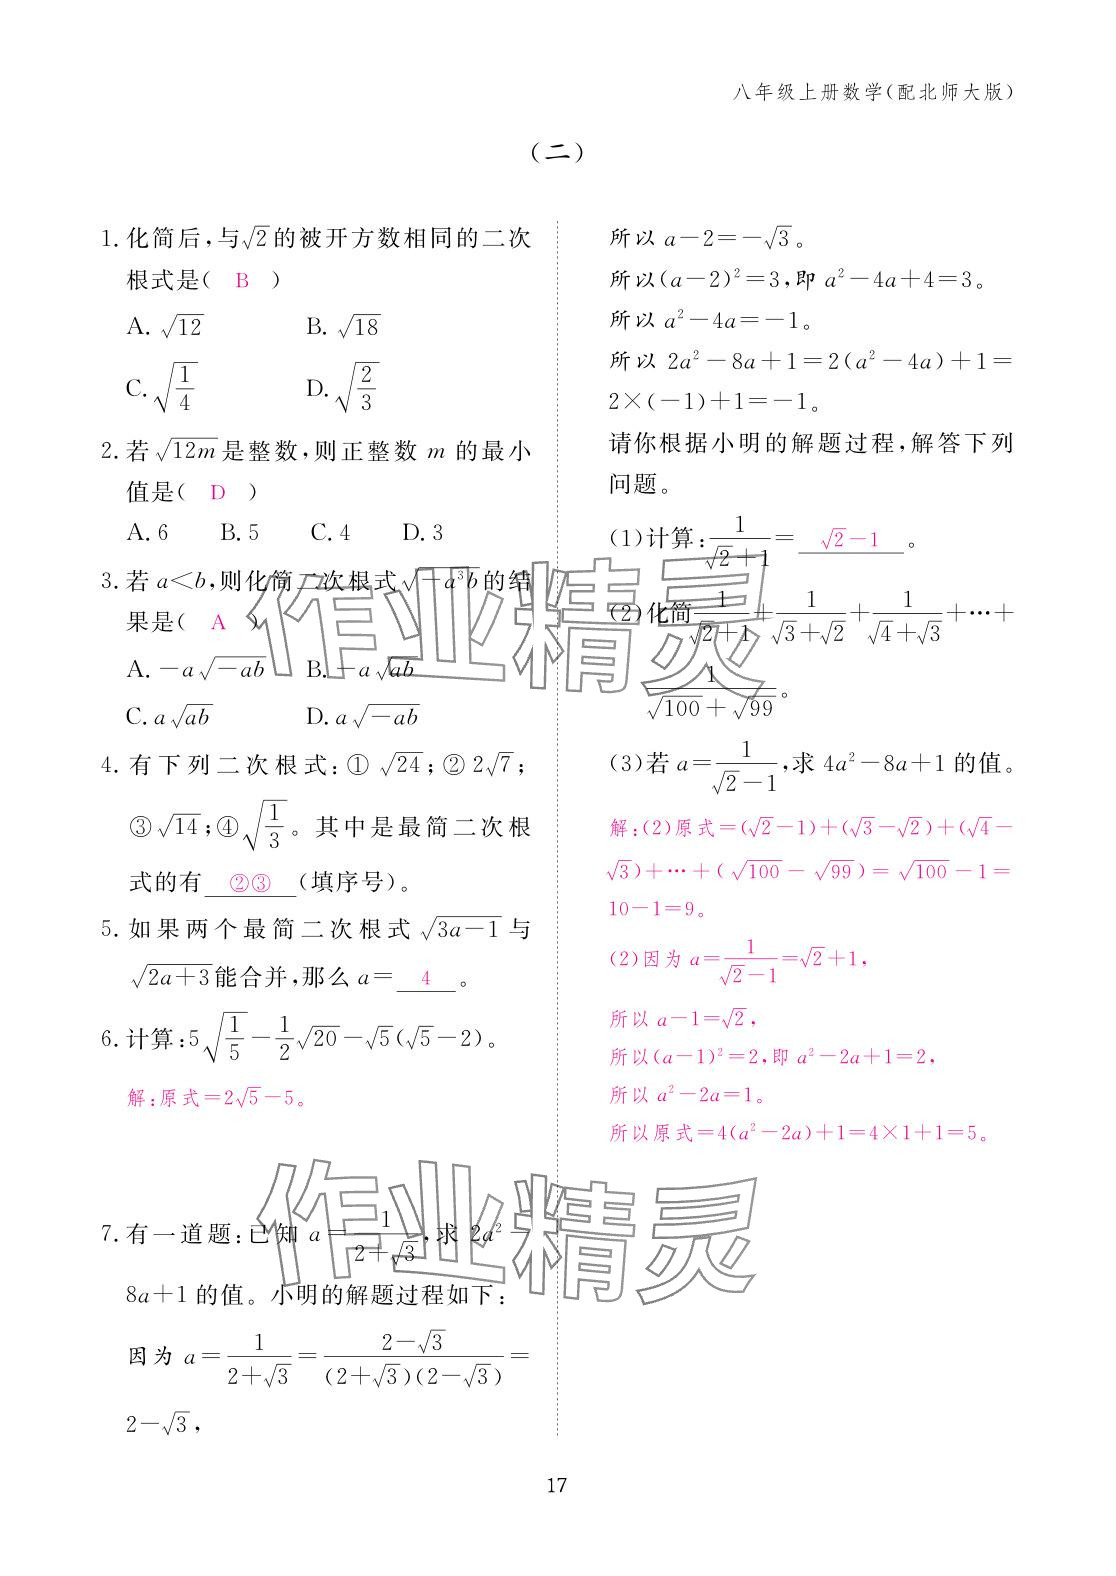 八年级上册数学(配北师大版)
(二)
1. 化简后,与√2的被开方数相同的二次
根式是( B )
A. √12 B. √18
C. √(1/4) D. √(2/3)
2. 若√(12m)是整数,则正整数 m 的最小
值是( D )
A. 6 B. 5 C. 4 D. 3
3. 若 a<b,则化简二次根式√(-a³b)的结
果是( A )
A. -a√(-ab) B. -a√(ab)
C. a√(ab) D. a√(-ab)
4. 有下列二次根式:① √24;② 2√7;
③ √14;④ √(1/3)。其中是最简二次根
式的有 ②③ (填序号)。
5. 如果两个最简二次根式 √(3a-1) 与
√(2a+3)能合并,那么 a= 4 。
6. 计算:5√(1/5)-1/2√20-√5(√5-2)。
解:原式=2√5-5。
7. 有一道题:已知 a=1/(2+√3),求 2a²-
8a+1 的值。小明的解题过程如下:
因为 a=1/(2+√3)=(2-√3)/((2+√3)(2-√3))=
2-√3,
所以 a-2=-√3。
所以(a-2)²=3,即 a²-4a+4=3。
所以 a²-4a=-1。
所以 2a²-8a+1=2(a²-4a)+1=
2×(-1)+1=-1。
请你根据小明的解题过程,解答下列
问题。
(1)计算:1/(√2+1)= √2-1 。
(2)化简1/(√2+1)+1/(√3+√2)+1/(√4+√3)+…+
1/(√100+√99)。
(3)若 a=1/(√2-1),求 4a²-8a+1 的值。
解:(2)原式=(√2-1)+(√3-√2)+(√4-
√3)+…+(√100-√99)=√100-1=
10-1=9。
(2)因为 a=1/(√2-1)=√2+1,
所以 a-1=√2,
所以(a-1)²=2,即 a²-2a+1=2,
所以 a²-2a=1。
所以原式=4(a²-2a)+1=4×1+1=5。
作业精灵
作业精灵
17